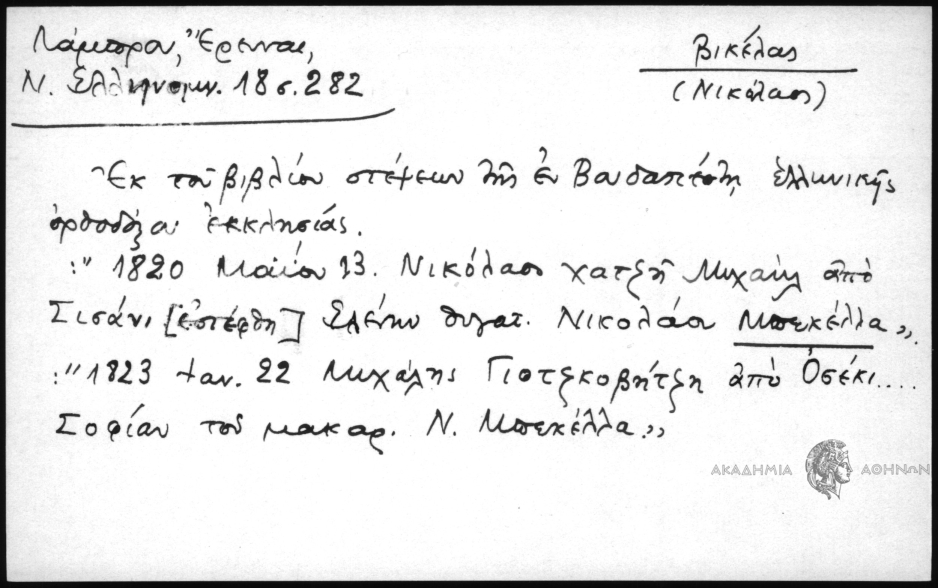 Λάμπρου, Ἔρευναι,
Ν. Ἑλληνομν. 18 σ. 282
Βικέλας
(Νικόλαος)
Ἐκ τοῦ βιβλίου στέψεων τῆς ἐν Βουδαπέστῃ ἑλληνικῆς
ὀρθοδόξου ἐκκλησίας.
:" 1820 Μαΐου 13. Νικόλαος χατζῆ Μιχαὴλ ἀπὸ
Σισάνι [ἐστέφθη] Ἑλένην θυγατ. Νικολάου Μπεκέλλα".
:" 1823 Ιαν. 22 Μιχάλης Γιοτζκοβήτζη ἀπὸ Ὀσέκι....
Σοφίαν τοῦ μακαρ. Ν. Μπεκέλλα."
ΑΚΑΔΗΜΙΑ ΑΘΗΝΩΝ